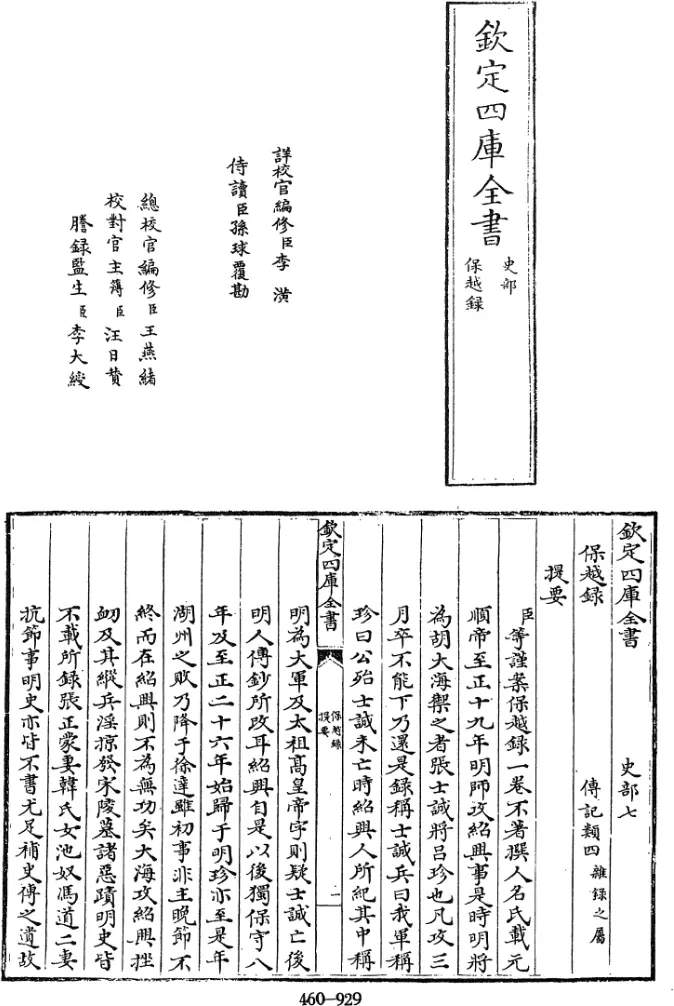 欽定四庫全書
史部
保越録
詳校官編修臣李潢
侍讀臣孫球覆勘
總校官編修臣王燕緒
校對官主簿臣汪日贊
謄録監生臣李大綬
欽定四庫全書 史部七
保越録 傳記類四雜錄之屬
提要
臣等謹案保越録一卷不著撰人名氏載元
順帝至正十九年明師攻紹興事是時明將
為胡大海禦之者張士誠將吕珍也凡攻三
月卒不能下乃還是録稱士誠兵曰我軍稱
珍曰公殆士誠未亡時紹興人所紀其中稱
欽定四庫全書
保越録
提要
一
明為大軍及太祖髙皇帝字則疑士誠亡後
明人傳鈔所改耳紹興自是以後獨保守八
年及至正二十六年始歸于明珍亦至是年
湖州之敗乃降于徐達雖初事非主晩節不
終而在紹興則不為無功矣大海攻紹興挫
衂及其縱兵淫掠發宋陵墓諸惡蹟明史皆
不載所録張正蒙妻韓氏女池奴馮道二妻
抗節事明史亦皆不書尤足補史傳之遺故
460-929